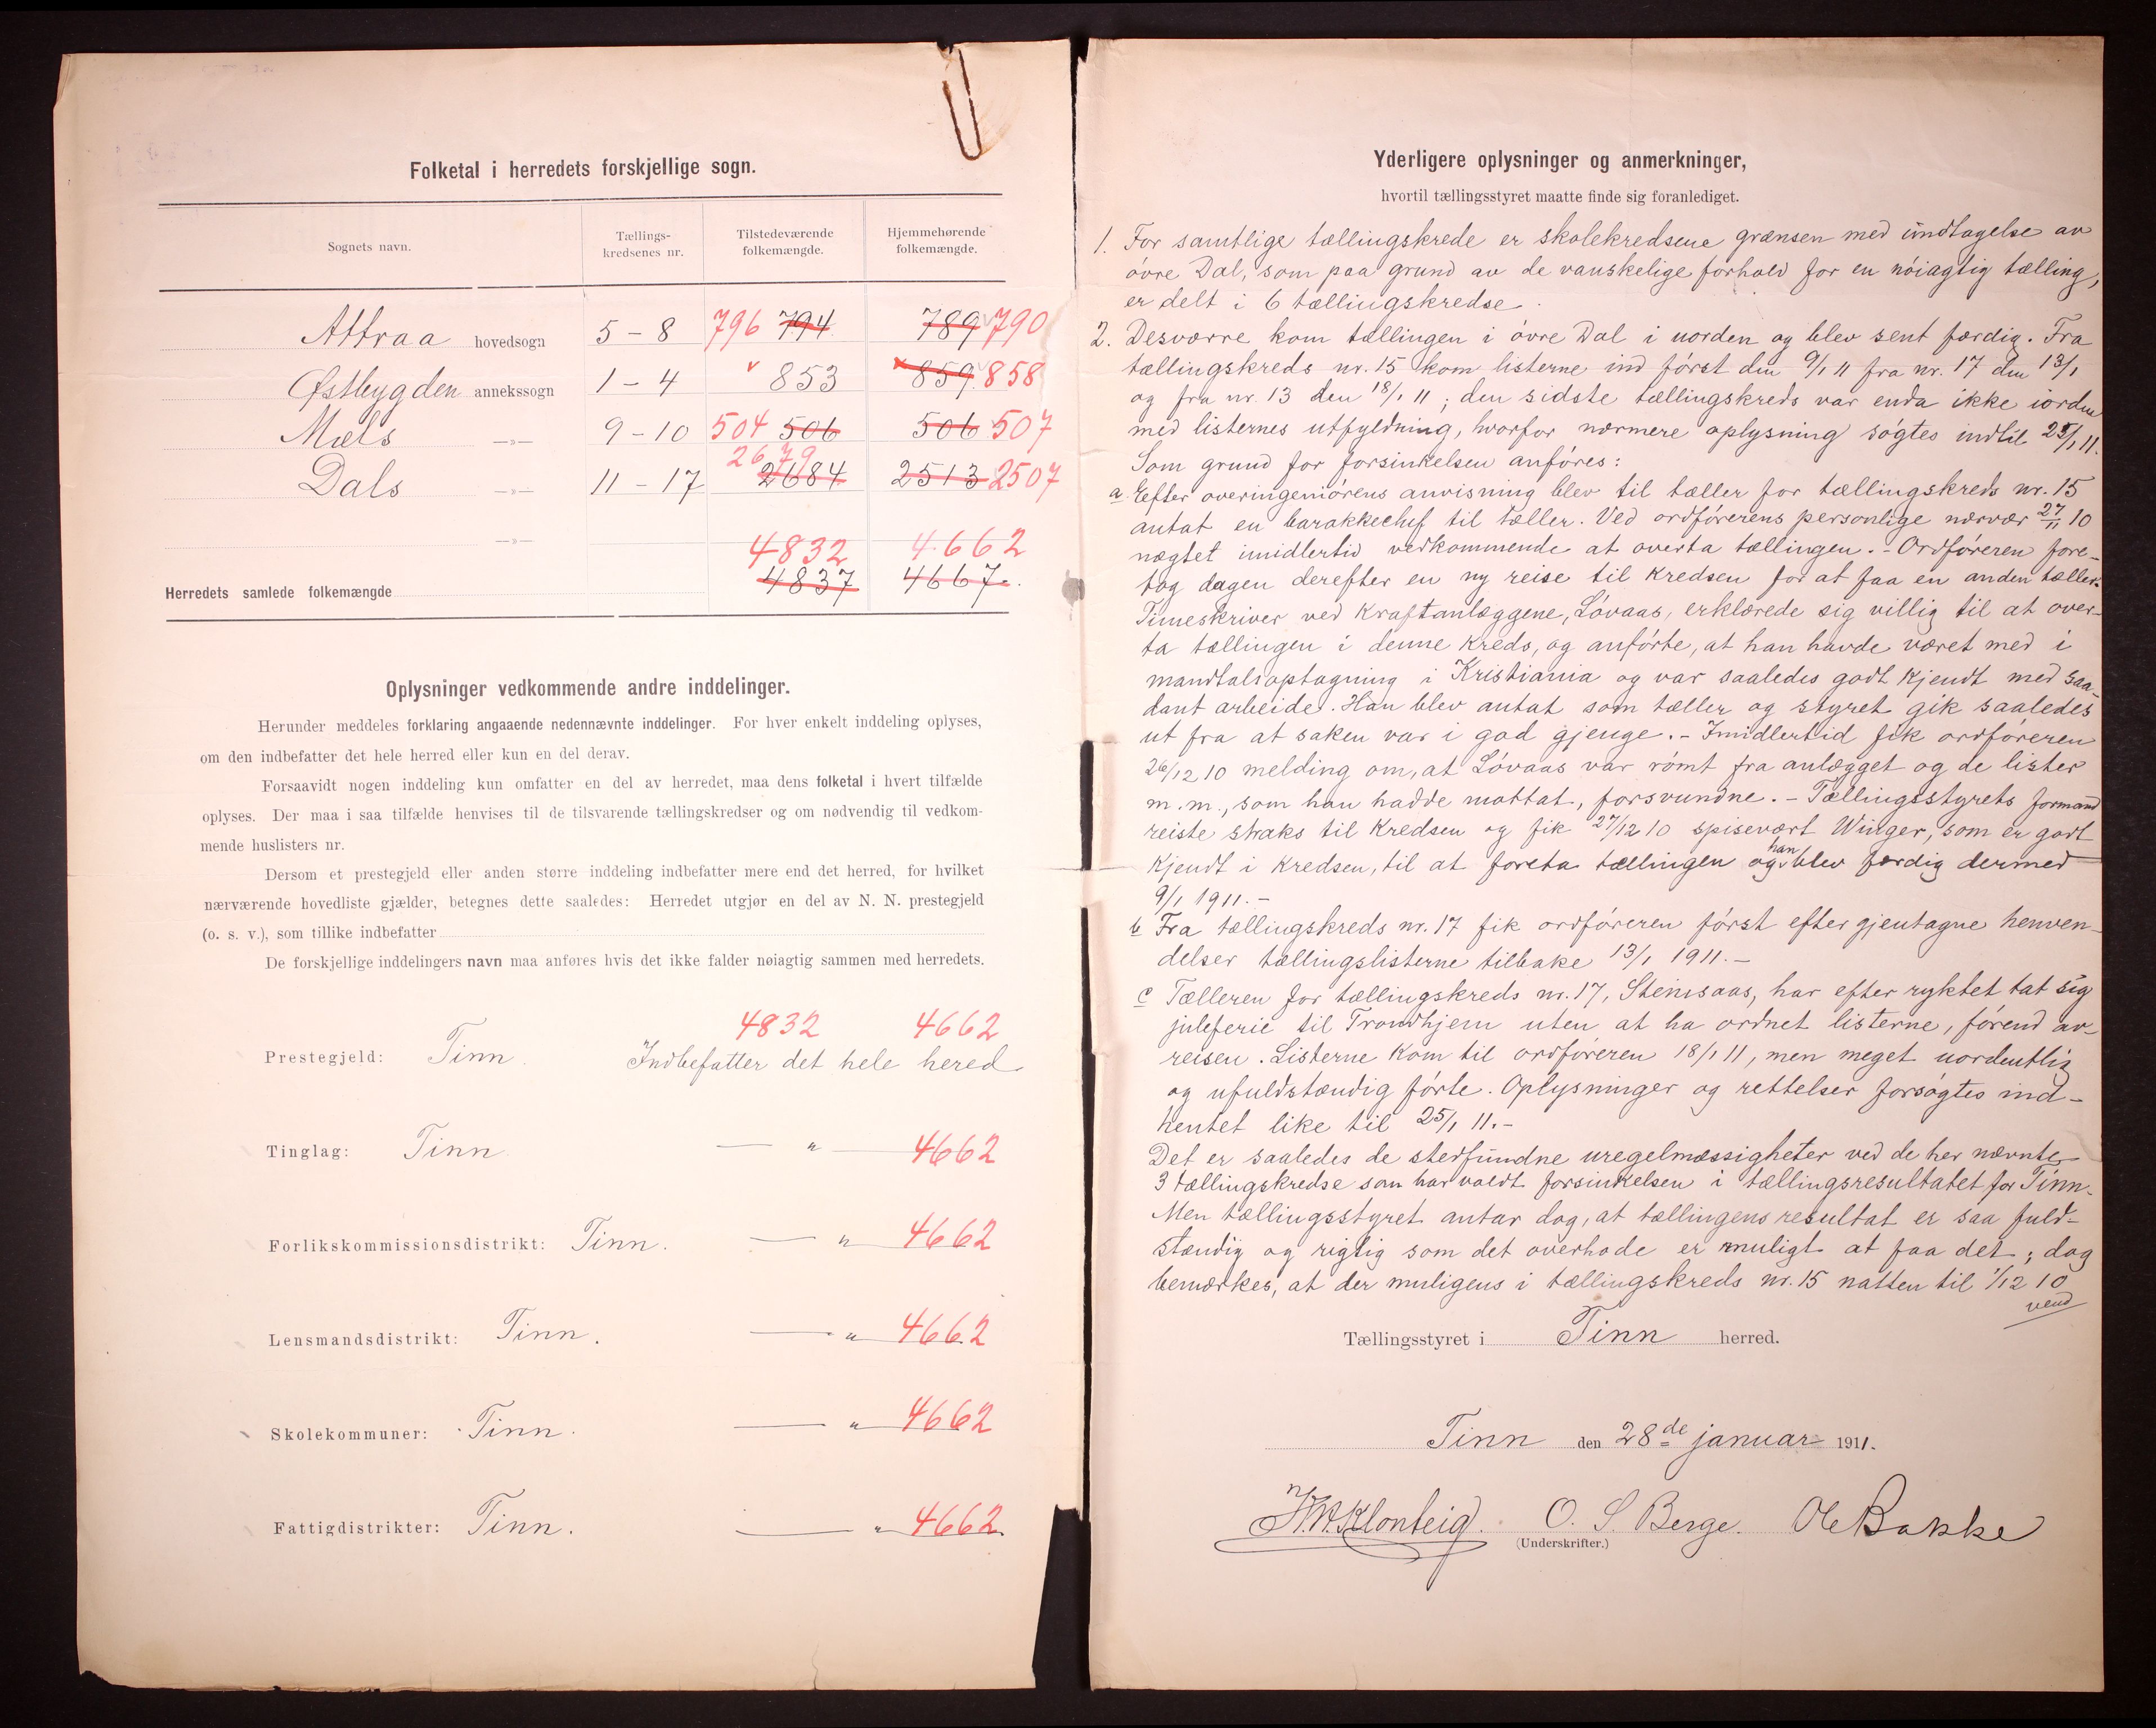 Folketal i herredets forskjellige sogn.
Sognets navn. Tællings-kredsenes nr. Tilstedeværende folkemængde. Hjemmehørende folkemængde.
Attraa hovedsogn 5 - 8 796 794 789 790
Østbygden annekssogn 1 - 4 853 859 858
Mæls —»— 9 - 10 504 506 506 507
Dals —»— 11 - 17 2679 2684 2513 2507
—»— 4832 4662
Herredets samlede folkemængde 4837 4667.
Oplysninger vedkommende andre inddelinger.
Herunder meddeles forklaring angaaende nedennævnte inddelinger. For hver enkelt inddeling oplyses,
om den indbefatter det hele herred eller kun en del derav.
Forsaavidt nogen inddeling kun omfatter en del av herredet, maa dens folketal i hvert tilfælde
oplyses. Der maa i saa tilfælde henvises til de tilsvarende tællingskredser og om nødvendig til vedkom-
mende huslisters nr.
Dersom et prestegjeld eller anden større inddeling indbefatter mere end det herred, for hvilket
nærværende hovedliste gjælder, betegnes dette saaledes: Herredet utgjør en del av N. N. prestegjeld
(o. s. v.), som tillike indbefatter
De forskjellige inddelingers navn maa anføres hvis det ikke falder nøiagtig sammen med herredets.
4832 4662
Prestegjeld: Tinn. Indbefatter det hele hered
Tinglag: Tinn — " — 4662
Forlikskommissionsdistrikt: Tinn. — " — 4662
Lensmandsdistrikt: Tinn. — " — 4662
Skolekommuner: Tinn. — " — 4662
Fattigdistrikter: Tinn. — " — 4662.
Yderligere oplysninger og anmerkninger,
hvortil tællingsstyret maatte finde sig foranlediget.
1. For samtlige tællingskrede er skolekredsene grænsen med undtagelse av
øvre Dal, som paa grund av de vanskelige forhold for en nøiagtig tælling,
er delt i 6 tællingskredse.
2. Desværre kom tællingen i øvre Dal i uorden og blev sent færdig. Fra
tællingskreds nr. 15 kom listerne ind først den 9/1 11 fra nr. 17 den 13/1
og fra nr. 13 den 18/1 11; den sidste tællingskreds var enda ikke iorden
med listernes utfyldning, hvorfor nærmere oplysning søgtes indtil 25/1 11.
Som grund for forsinkelsen anføres:
a. Efter overingeniørens anvisning blev til tæller for tællingskreds nr. 15
antat en barakkechef til tæller. Ved ordførerens personlige nærvær 27/11 10
nægtet imidlertid vedkommende at overta tællingen. - Ordføreren fore-
tog dagen derefter en ny reise til kredsen for at faa en anden tæller.
Timeskriver ved Kraftanlæggene, Løvaas, erklærede sig villig til at over-
ta tællingen i denne kreds, og anførte, at han havde været med i
mandtalsoptagning i Kristiania og var saaledes godt kjendt med saa-
dant arbeide. Han blev antat som tæller og styret gik saaledes
ut fra at saken var i god gjenge. - Imidlertid fik ordføreren
26/12 10 melding om, at Løvaas var rømt fra anlægget og de lister
m. m., som han hadde mottat, forsvundne. - Tællingsstyrets formand
reiste straks til Kredsen og fik 27/12 10 spisevært Winger, som er godt
kjendt i kredsen, til at foreta tællingen og han blev færdig dermed
9/1 1911. -
b Fra tællingskreds nr. 17 fik ordføreren først efter gjentagne henven-
delser tællingslisterne tilbake 13/1 1911. -
c Tælleren for tællingskreds nr. 17, Steinsaas, har efter ryktet tat sig
juleferie til Trondhjem uten at ha ordnet listerne, førend av-
reisen. Listerne kom til ordføreren 18/1 11, men meget uordentlig
og ufuldstændig førte. Oplysninger og rettelser forsøgtes ind-
hentet like til 25/1 11. -
Det er saaledes de stedfundne uregelmæssigheter ved de her nævnte
3 tællingskredse som har voldt forsinkelsen i tællingsresultatet for Tinn.
Men tællingsstyret antar dog, at tællingens resultat er saa fuld-
stændig og rigtig som det overhode er muligt at faa det; dog
bemærkes, at der muligens i tællingskreds nr. 15 natten til 1/12 10
vend
Tællingsstyret i Tinn herred.
Tinn den 28de januar 1911.
O. S. Berge. Ole Bakke
(Underskrifter.)